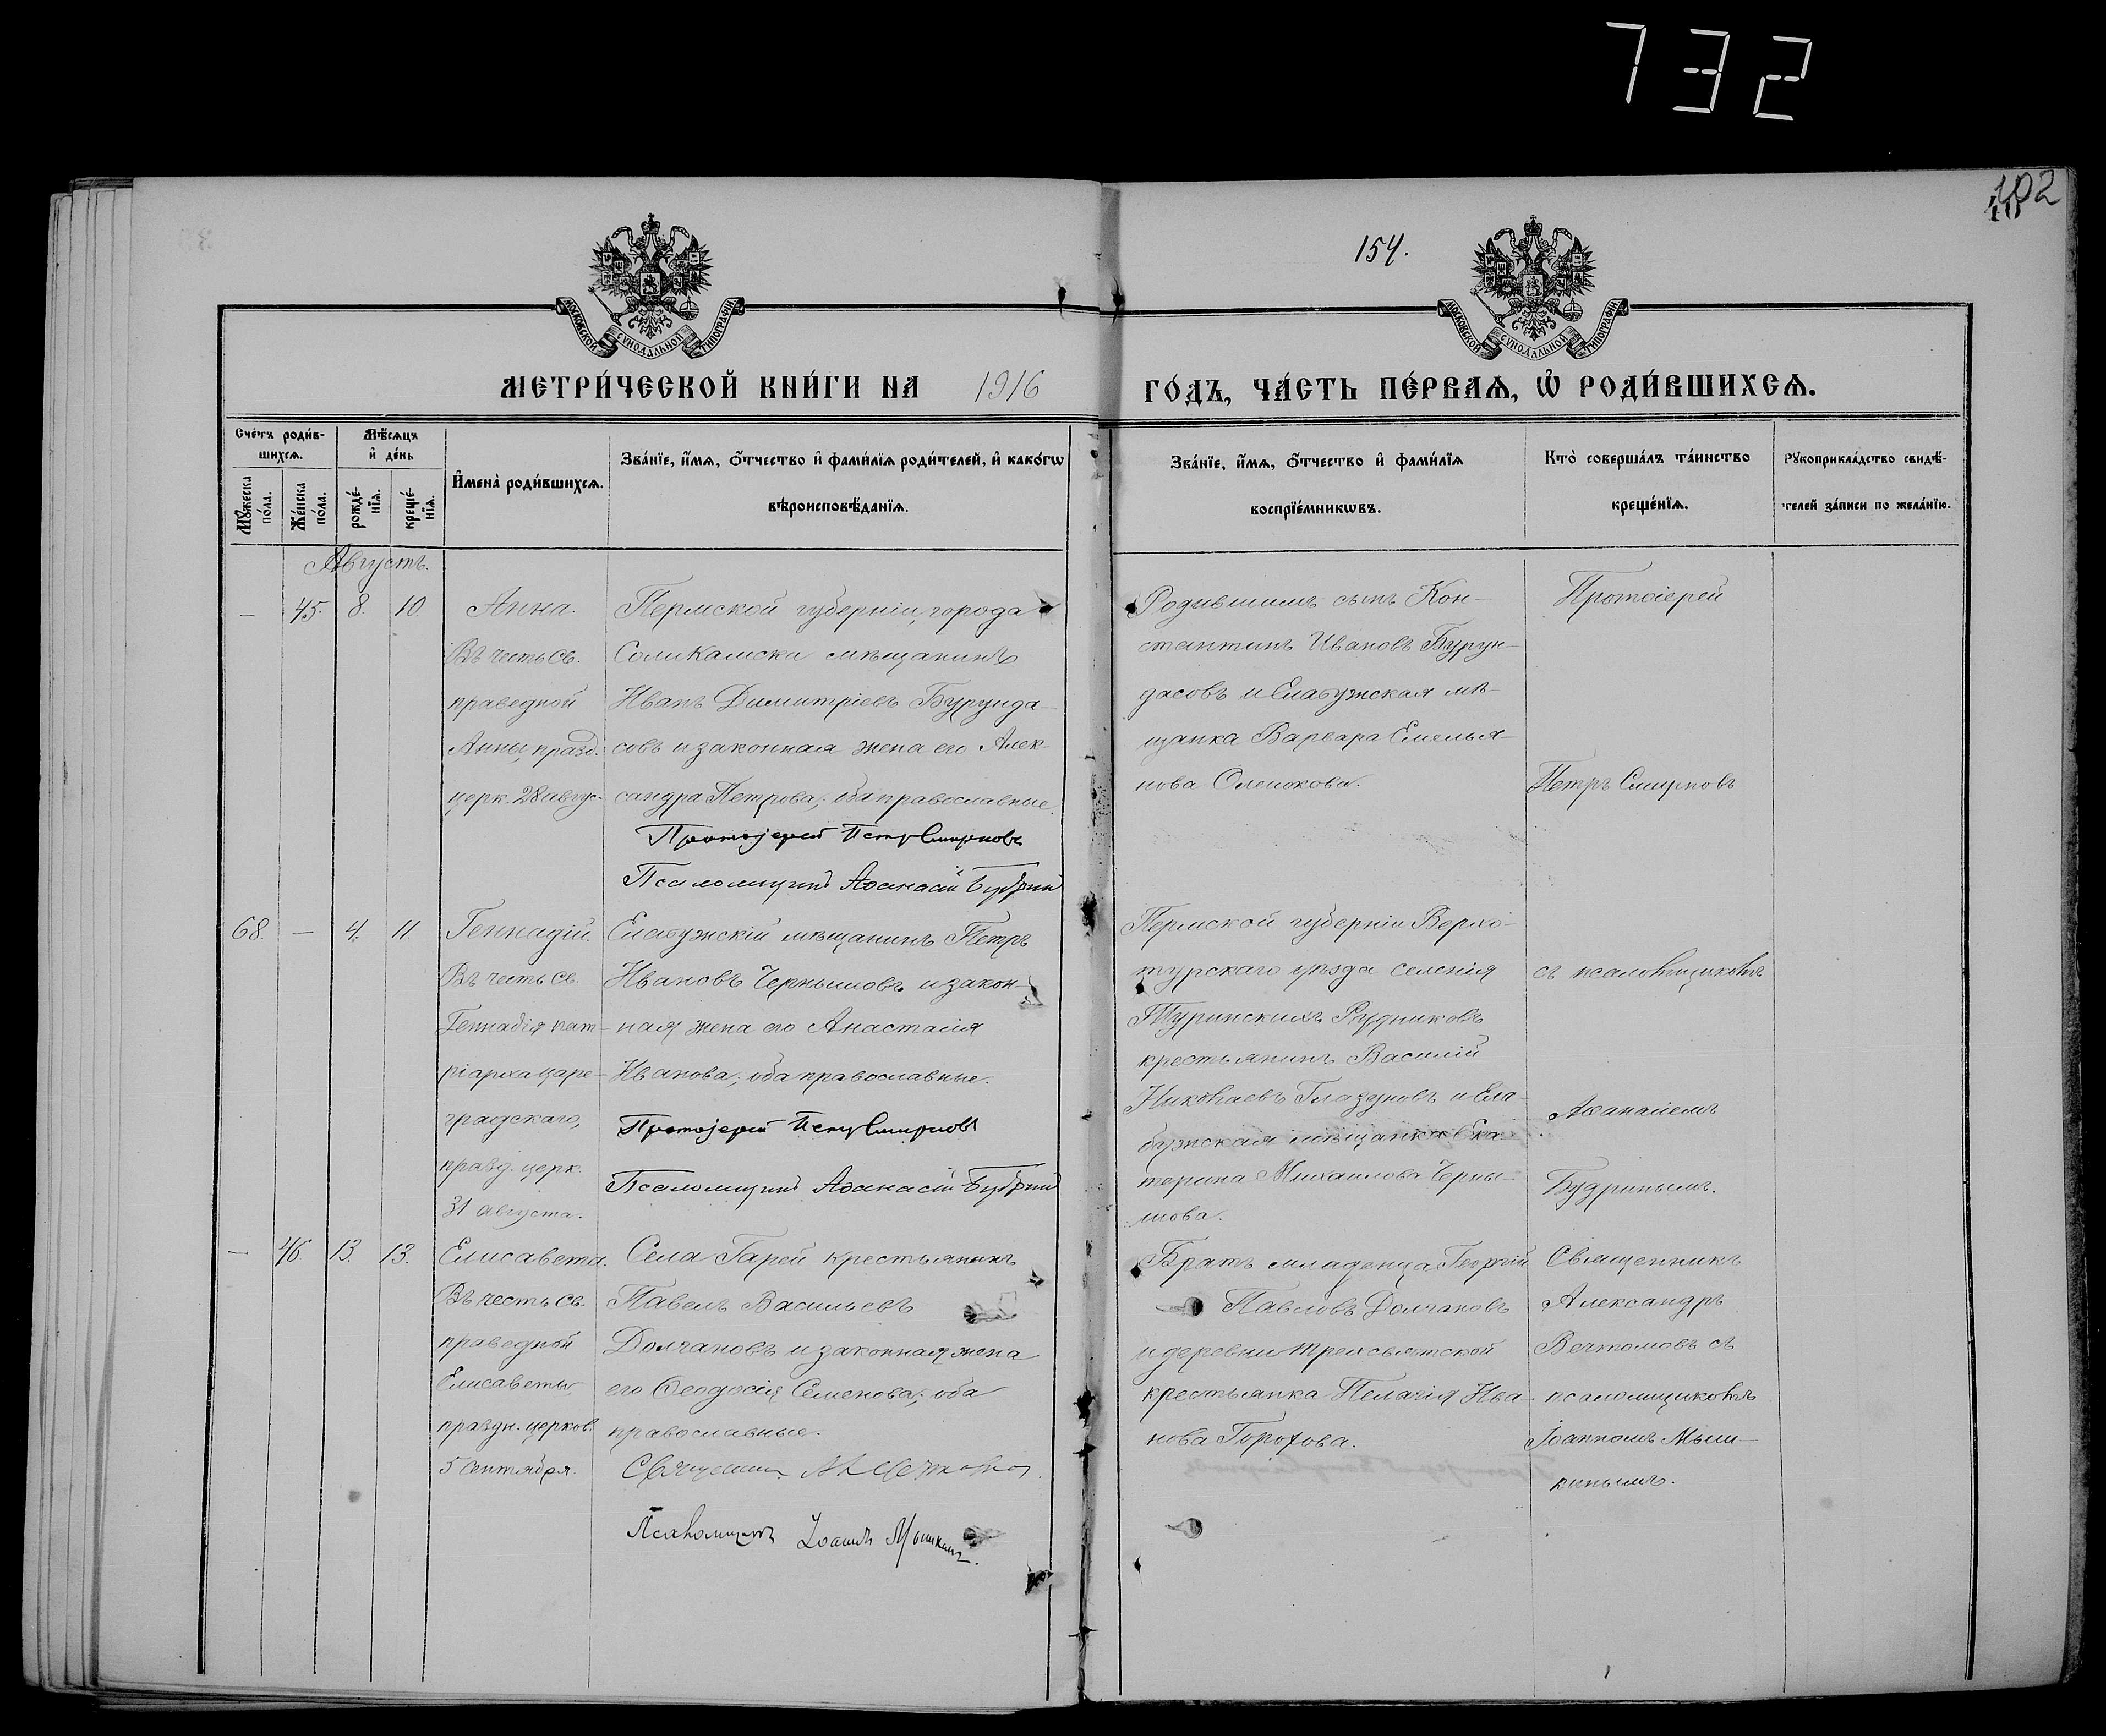 732
102
154.
МОСКОВСКОЙ СѴНОДАЛЬНОЙ ТИПОГРАФІИ
МОСКОВСКОЙ СѴНОДАЛЬНОЙ ТИПОГРАФІИ
МЕТРИ́ЧЕСКОЙ КНИ́ГИ НА 1916 ГО́ДЪ, ЧА́СТЬ ПЕ́РВАѦ, Ѡ҆ РОДИ́ВШИХСѦ.
Сче́тъ роди́в-
шихсѧ.
Мꙋ́жеска
по́ла.
Же́нска
по́ла.
Мѣ́сѧцъ
и҆ де́нь
рожде́-
нїѧ.
креще́-
нїѧ.
И҆мена̀ роди́вшихсѧ.
Зва́нїе, и҆́мѧ, ѻ҆́тчество и҆ фами́лїѧ роди́телей, и҆ како́гѡ
вѣроисповѣ́данїѧ.
Зва́нїе, и҆́мѧ, ѻ҆́тчество и҆ фами́лїѧ
воспрїе́мникѡвъ.
Кто̀ соверша́лъ та́инство
креще́нїѧ.
Рꙋкоприкла́дство свидѣ́-
телей за́писи по жела́нїю.
Августъ.
— 45. 8. 10.
Анна.
Въ честь св.
праведной
Анны, празд.
церк. 28 авгус-
Пермской губерніи, города
Соликамска мѣщанинъ
Иванъ Димитріевъ Бурунда-
совъ и законная жена его Алек-
сандра Петрова; оба православные.
Протоjерей Петръ Смирновъ
Псаломщикъ Аѳанасій Будринъ
Родившимъ сынъ Кон-
стантинъ Ивановъ Бурун-
дасовъ и Елабужская мѣ-
щанка Варвара Емелья-
нова
Протоіерей
Петръ Смирновъ
68. — 4. 11.
Геннадій.
Въ честь св.
Геннадія пат-
ріарха царе-
градскаго,
празд. церк.
31 августа.
Елабужскій мѣщанинъ Петръ
Ивановъ Чернышовъ и закон-
ная жена его Анастасія
Иванова; оба православные.
Протоjерей Петръ Смирновъ
Псаломщикъ Аѳанасій Будринъ
Пермской губерніи Верхо-
турскаго уѣзда селенія
Туринскихъ Рудниковъ
крестьянинъ Василій
Николаевъ Глазуновъ и Ела-
бужская мѣщанка Ека-
терина Михаилова Черны-
шова.
съ псаломщикомъ
Аѳанасіемъ
Будринымъ.
— 46. 13. 13.
Елисавета.
Въ честь св.
праведной
Елисаветы
праздн. церков.
5 сентября.
Села Гарей крестьянинъ
Павелъ Васильевъ
Долгановъ и законная жена
его Ѳеодосія Семенова; оба
православные.
Священникъ
Псаломщикъ Іоаннъ Мышкинъ.
Братъ младенца Георгій
Павловъ Долгановъ
и деревни Трехсвятской
крестьянка Пелагія Ива-
нова Горохова.
Священникъ
Александръ
Вечтомовъ съ
псаломщикомъ
Іоанномъ Мыш-
кинымъ.